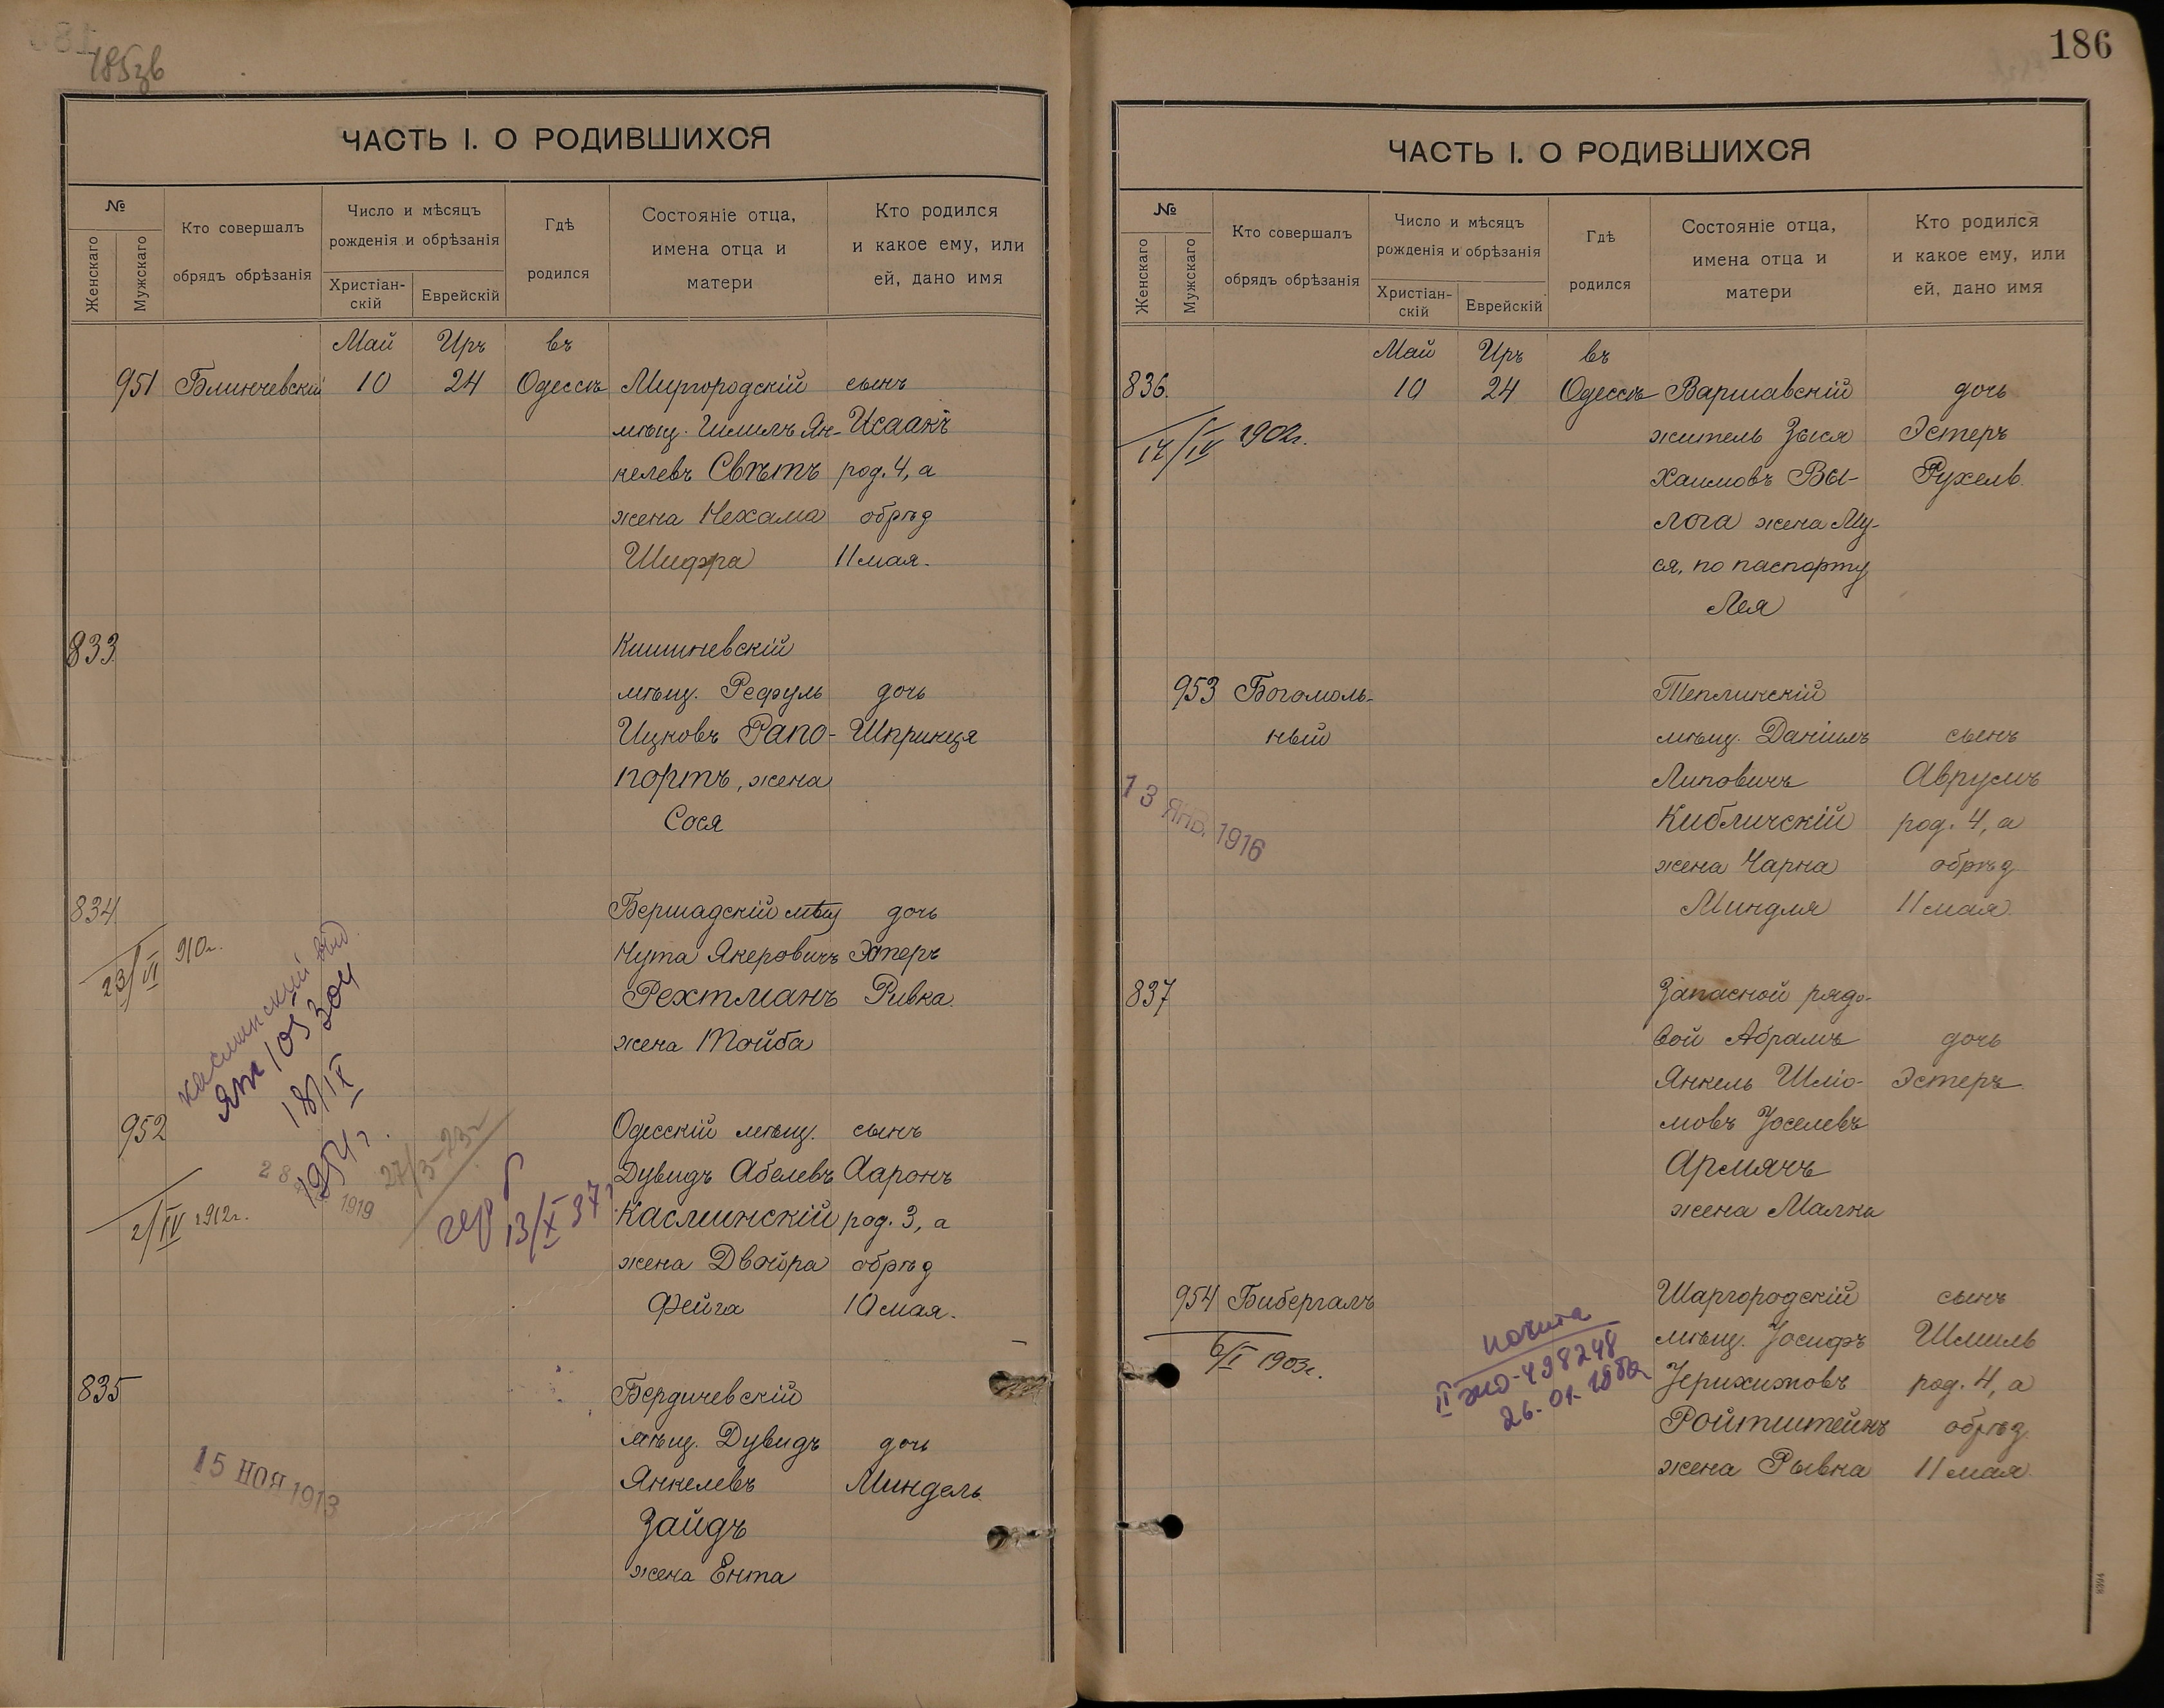 185зв
ЧАСТЬ I. О РОДИВШИХСЯ
№
Женскаго
Мужскаго
Кто совершалъ
обрядъ обрѣзанія
Число и мѣсяцъ
рожденія и обрѣзанія
Христіан-
скій
Еврейскій
Гдѣ
родился
Состояніе отца,
имена отца и
матери
Кто родился
и какое ему, или
ей, дано имя
Май Иръ въ
951 Блинчевскій 10 24 Одессѣ Миргородскій сынъ
мѣщ. Шмилъ Ян- Исаакъ
келевъ Свѣтъ род. 4, а
жена Нехама обрѣд
Шифра 11 мая.
833 Кишиневскій
мѣщ. Рефуль дочь
Ицковъ Рапо- Шпринця
портъ, жена
Сося
834 Бершадскій мѣщ дочь
23/VI 910г.
Нута Якеровичъ Эстеръ
Рехтманъ Ривка
жена Тойба
Каслинский
105304
18/IX
1954г.
952 Одесскій мѣщ. сынъ
Дувидъ Абелевъ Ааронъ
2/IV 1912г.
28 1919
27/3-23г
13/X 37г
Каслинскій род. 3, а
жена Двойра обрѣд
Фейга 10 мая.
835 Бердичевскій
мѣщ. Дувидъ дочь
Янкелевъ Миндель
15 НОЯ 1913
Зайдъ
жена Ента
186
ЧАСТЬ I. О РОДИВШИХСЯ
№
Женскаго
Мужскаго
Кто совершалъ
обрядъ обрѣзанія
Число и мѣсяцъ
рожденія и обрѣзанія
Христіан-
скій
Еврейскій
Гдѣ
родился
Состояніе отца,
имена отца и
матери
Кто родился
и какое ему, или
ей, дано имя
Май Иръ въ
836 10 24 Одессѣ Варшавскій дочь
1902г.
житель Зыся Эстеръ
Хаимовъ Вы- Рухель
лога жена Му-
ся, по паспорту
Лея
953 Богомоль- Теплинскій
ный мѣщ. Даніилъ сынъ
13 ЯНВ. 1916
Липовичъ Аврумъ
Кибличскій род. 4, а
жена Чарна обрѣд
Миндля 11 мая
837 Запасной рядо-
вой Абрамъ дочь
Янкель Шліо- Эстеръ
мовъ Іоселевъ
Армячъ
жена Малка
954 Бибергалъ Шаргородскій сынъ
мѣщ. Іосифъ Шмиль
6/I 1903г.
II ЖО-498248
Іерихимовъ род. 4, а
Ройтштейнъ обрѣд
жена Рывка 11 мая
8304